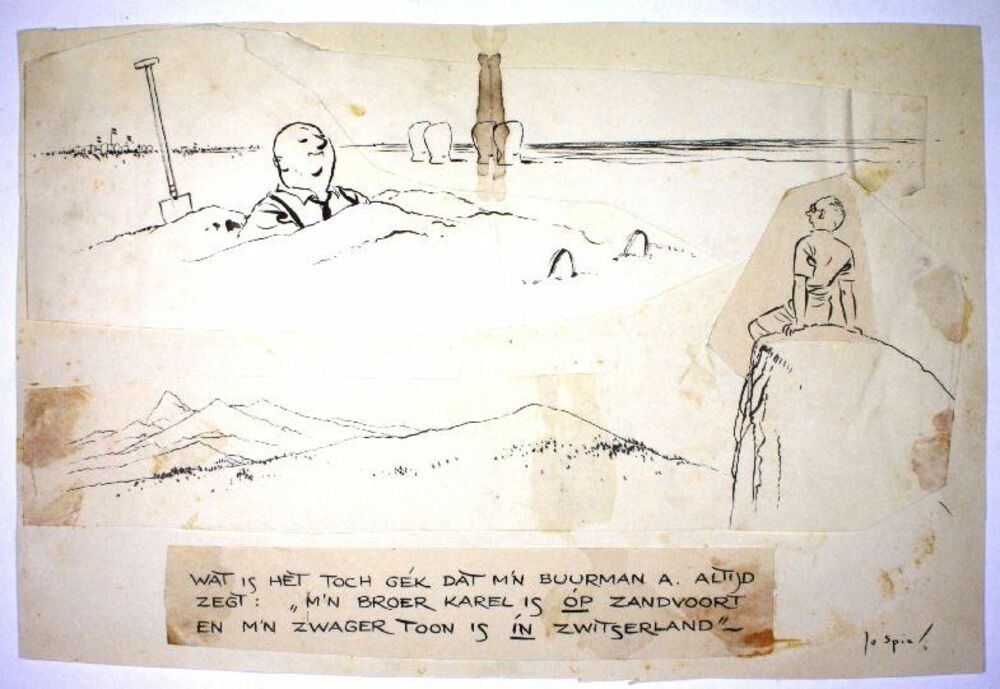 WAT IS HET TOCH GÉK DAT M'N BUURMAN A. ALTIJD
ZEGT: „M'N BROER KAREL IS ÓP ZANDVOORT
EN M'N ZWAGER TOON IS ÍN ZWITSERLAND"~
Jo Spier